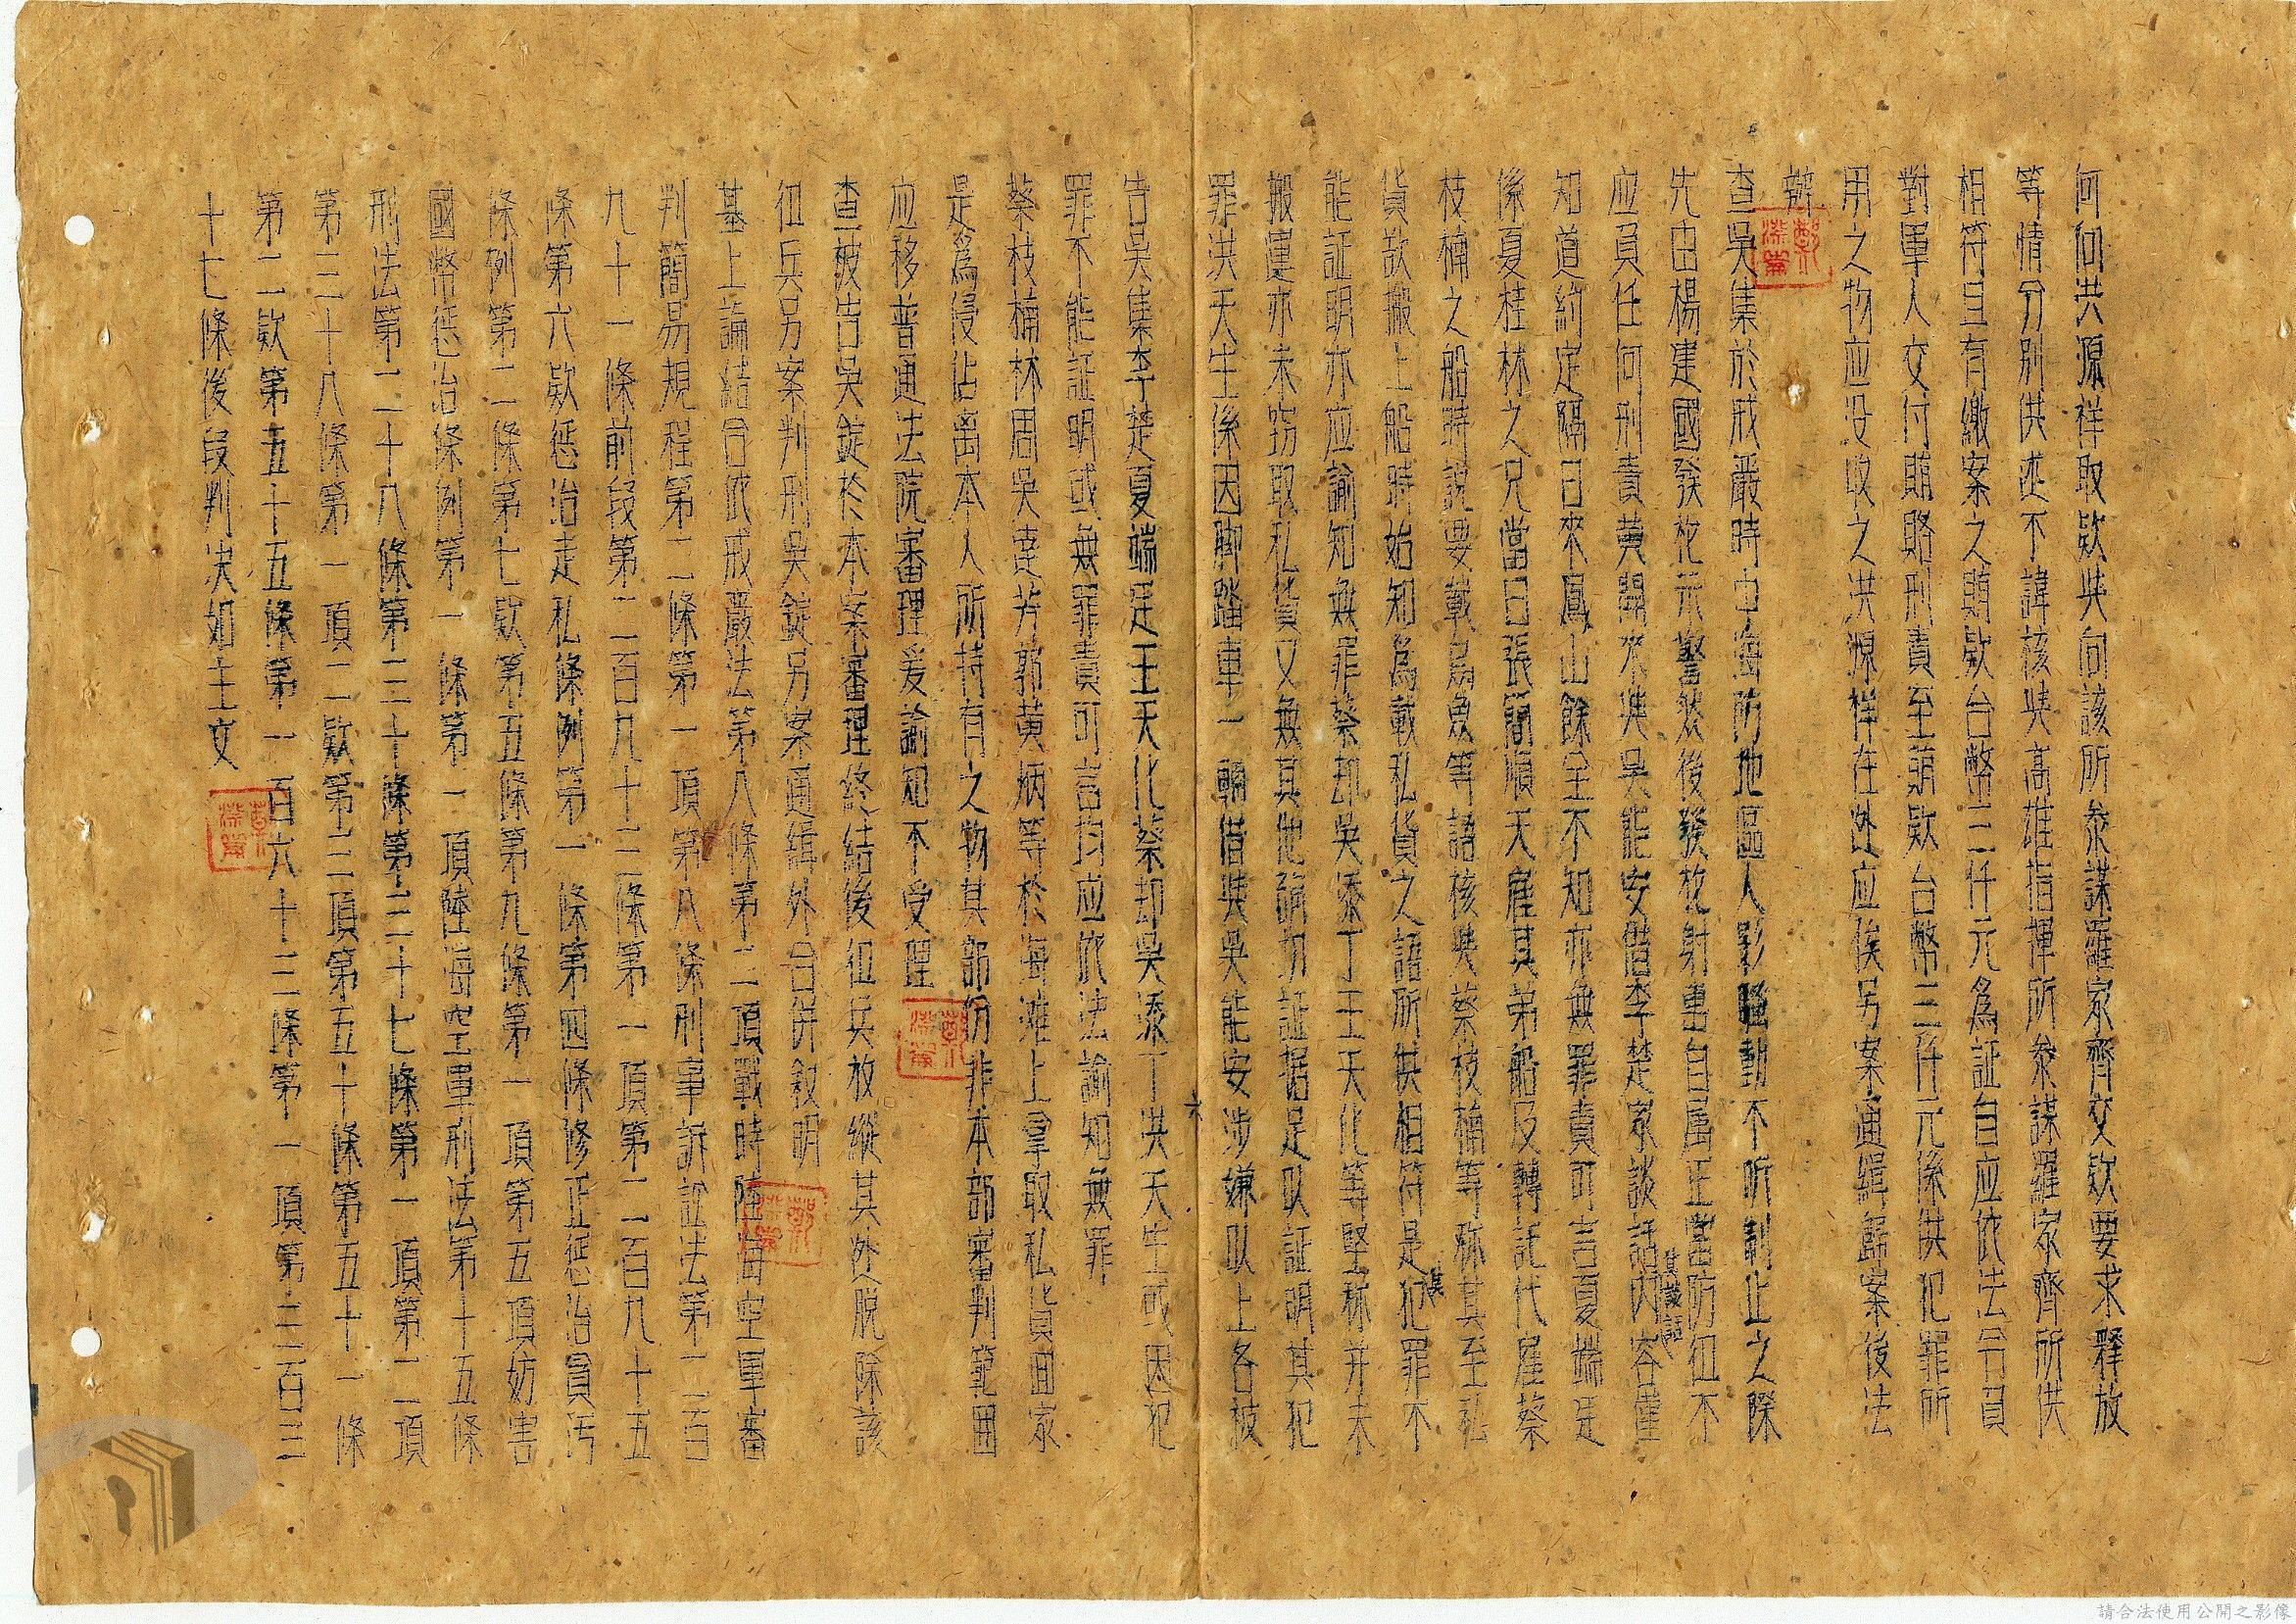 何向洪源祥取欵與向該所參謀羅家齊交欵要求釋放
等情分別供述不諱核與高雄指揮所參謀羅家齊所供
相符且有繳案之賄欵台幣三仟元為証自应依法令負
對軍人交付賄賂刑責至賄欵台幣三仟元係供犯罪所
用之物应没收之洪源祥在逃应俟另案通緝歸案後法
辦
查吳集於戒嚴時中海防地區人影騷動不听制止之際
先由楊建國發枪示警然後發枪射擊自屬正當防衛不
应負任何刑責黃開來與吳能安借李楚家談話其談話內容僅
知道約定隔日來鳳山餘全不知亦無罪責可言夏端是
係夏桂林之兄當日張簡順天雇其弟船及轉託代雇蔡
枝楠之船時說要載烏魚等語核與蔡枝楠等称其至私
貨欵搬上船時始知為載私貨之語所供相符是其犯罪不
能証明亦应諭知無罪蔡却吳添丁王天化等堅称并未
搬運亦未竊取私貨又無其他确切証据足以証明其犯
罪洪天生係因脚踏車一輛借與吳能安涉嫌以上各被
告吳集李楚夏端是王天化蔡却吳添丁洪天生或因犯
罪不能証明或無罪責可言均应依法諭知無罪
蔡枝楠林周吳達芳郭黃炳等於海灘上拿取私貨回家
是為侵佔离本人所持有之物其部份非本部審判範囲
应移普通法院審理爰諭知不受理
查被告吳錠於本案審理終結後衛兵放縱其逃脱除該
衛兵另案判刑吳錠另案通緝外合併敘明
基上論結合依戒嚴法第八條第二項戰時陸海空軍審
判簡易規程第二條第一項第八條刑事訴訟法第二百
九十一條前段第二百九十三條第一項第二百九十五
條第六欵惩治走私條例第一條第四條修正惩治貪污
條例第二條第七欵第五條第九條第一項第五項妨害
國幣惩治條例第一條第一項陸海空軍刑法第十五條
刑法第二十八條第三十條第三十七條第一項第二項
第三十八條第一項二欵第三項第五十條第五十一條
第二欵第五十五條第一百六十三條第一項第三百三
十七條後段判决如主文
六
請合法使用公開之影像